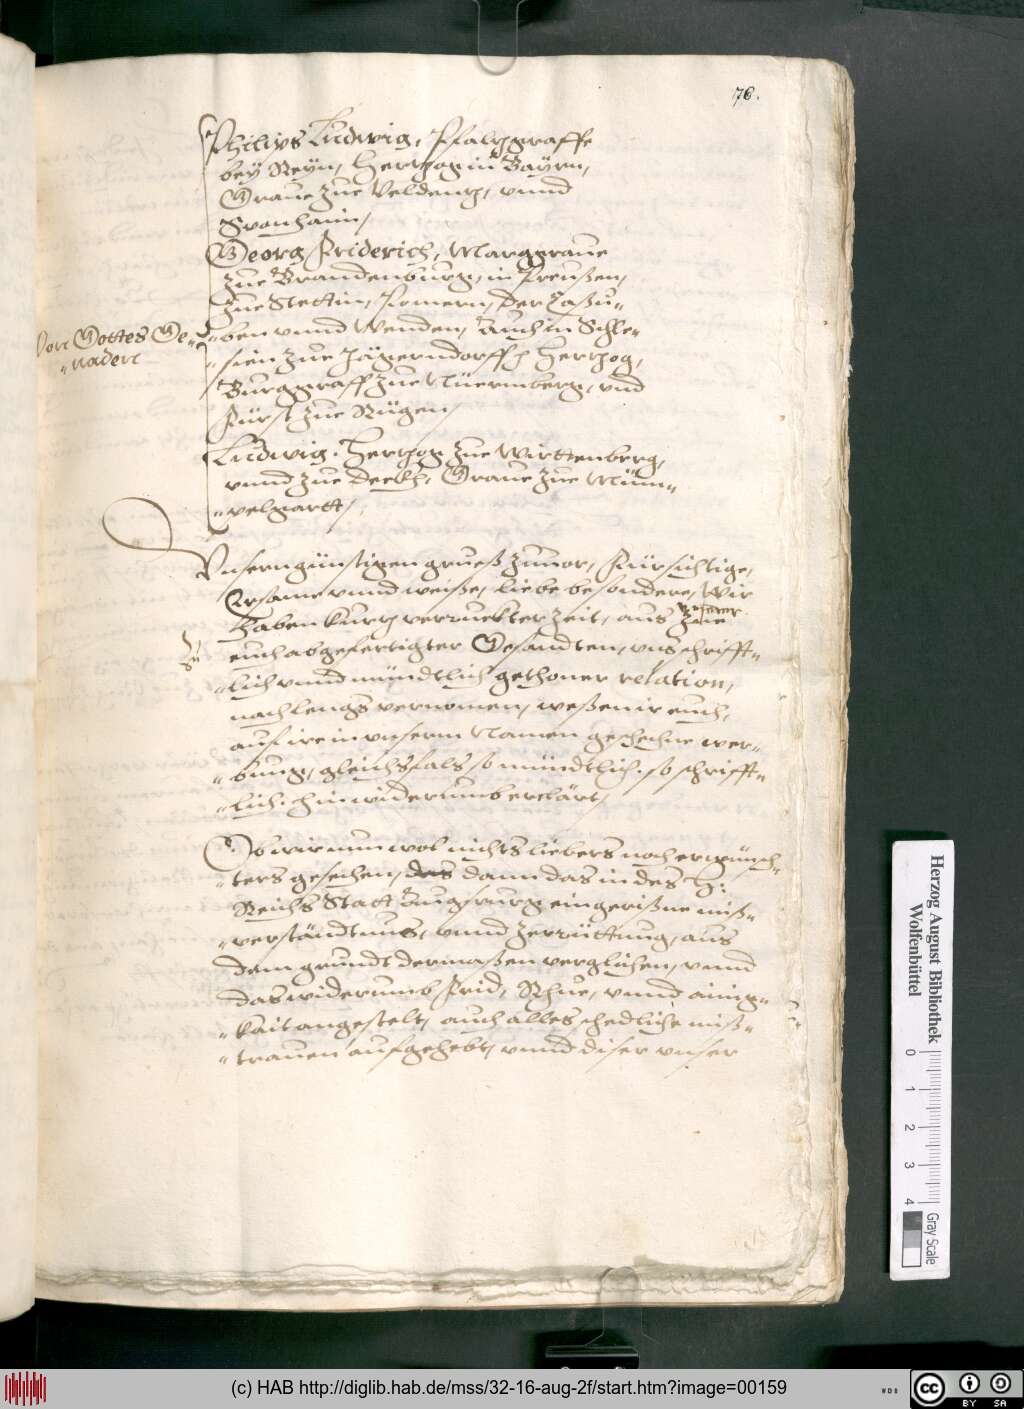 76.
Philips Ludwig, Pfaltzgraffe
bey Reyn, Hertzog in Bayrn,
Graue zue Veldentz, vnnd
Sponhaim,
Georg Friderich, Marggraue
zue Brandenburg, in Preußen,
zue Stettin, Pomern, der Caßu-
Von Gottes Ge-
-naden
-ben vnnd Wenden, Auch in Schle-
-sien zue Jägerndorff, Hertzog,
Burggraff zue Nüermberg, vnd
Fürst zue Rügen,
Ludwig, Hertzog zue Wirttenberg,
vnnd zue Deckh, Graue zue Müm-
-velgartt,
Vnsern günstigen grueß zuuor, Fürsichtige,
Ersame vnnd weiße, liebe besondere, Wir
haben kurtz verruckter Zeit, aus vnserer
Zu
euch abgefertigter Gesandten, vns schrifft-
-lich vnnd mündtlich gethoner relation,
nach lengs vernomen, weßen ir euch,
auf ire in vnserm Namen geschehne wer-
-bung, gleichsfals so mündtlich, so schrifft-
-lich, hinwiderumb erclärt,
Ob wir nun wol nichts liebers noch erwünsch-
-ters gesehen, das dann das in des H:
Reichs Statt Augspurg eingerißne miß-
-verständtnus, vnnd Zerrüttung, aus
dem grundt dermaßen verglichen, vnnd
das widerumb Frid, Rhue, vnnd ainig-
-kait angestelt, auch alles schedliche miß-
-trauen aufgehebt, vnnd diser vnser
Herzog August Bibliothek
Wolfenbüttel
0 1 2 3 4
Gray Scale
(c) HAB http://diglib.hab.de/mss/32-16-aug-2f/start.htm?image=00159
WDB
CC BY SA